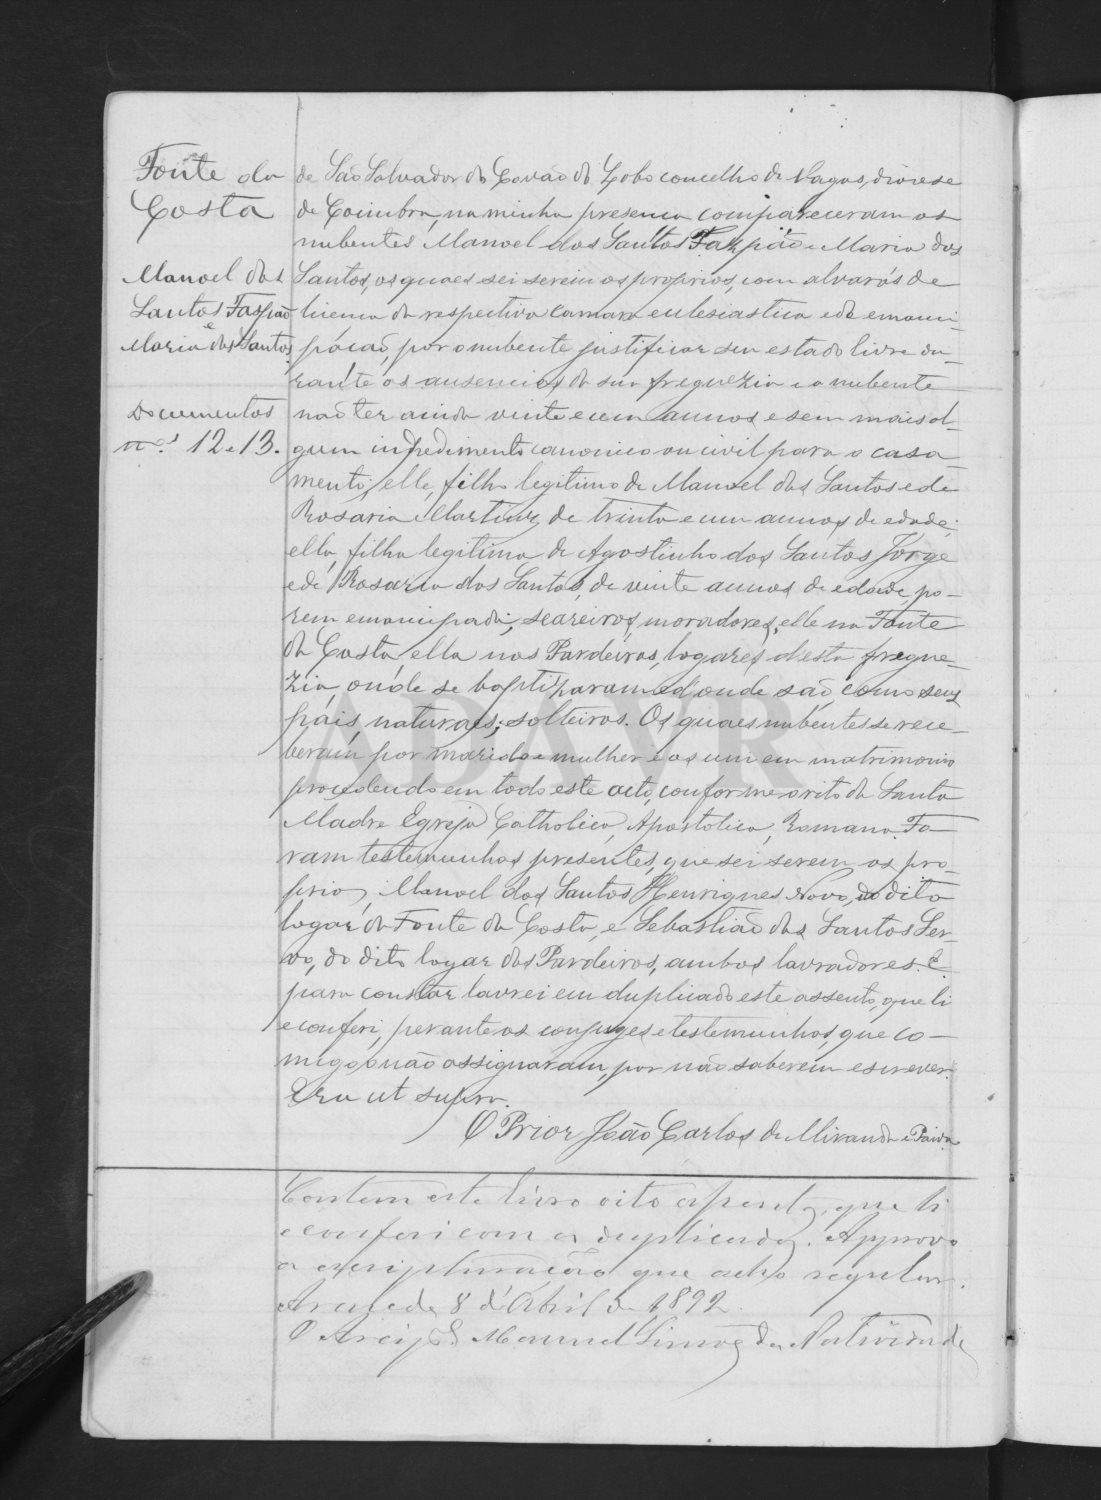 Fonte da
Costa
Manoel dos
Santos Faspão
e
Maria dos Santos
Documentos
nos 12 e 13.
de São Salvador do Covão do Lobo concelho de Vagos, diocese
de Coimbra, na minha presença compareceram os
nubentes Manoel dos Santos Faspão e Maria dos
Santos, os quaes sei serem os proprios, com alvarás de
licença da respectiva camara eclesiastica e de emanci-
pação, por o nubente justificar seu estado livre du-
rante as ausencias da sua freguezia e a nubente
não ter ainda vinte e um annos e sem mais al-
gum impedimento canonico ou civil para o casa-
mento; elle, filho legitimo de Manoel dos Santos e de
Rosaria Martins, de trinta e um annos de edade;
ella, filha legitima de Agostinho dos Santos Jorge
e de Rosaria dos Santos, de vinte annos de edade, po-
rem emancipada; seareiros, moradores, elle na Fonte
da Costa, ella nos Pardeiros, logares d'esta fregue-
zia, onde se baptizaram e d'onde são, como seus
pais, naturaes; solteiros. Os quaes nubentes se rece-
beram por marido e mulher e os uni em matrimonio
procedendo em todo este acto, conforme o rito da Santa
Madre Egreja Catholica, Apostolica, Romana. Fo-
ram testemunhas presentes, que sei serem os pro-
prios, Manoel dos Santos Henriques Novo, do dito
logar da Fonte da Costa, e Sebastião dos Santos Ser-
vo, do dito logar dos Pardeiros, ambos lavradores. E
para constar lavrei em duplicado este assento, que li
e conferi, perante os conjuges e testemunhas, que co-
migo não assignaram, por não saberem escrever.
Era ut supra.
O Prior João Carlos de Miranda e Paiva
Contem este livro oito assentos, que li
e conferi com os duplicados. Approvo
a escripturação que acho regular.
Arazede, 8 d'Abril de 1892.
O Arcip. Manuel Simões da Natividade
ADAVR